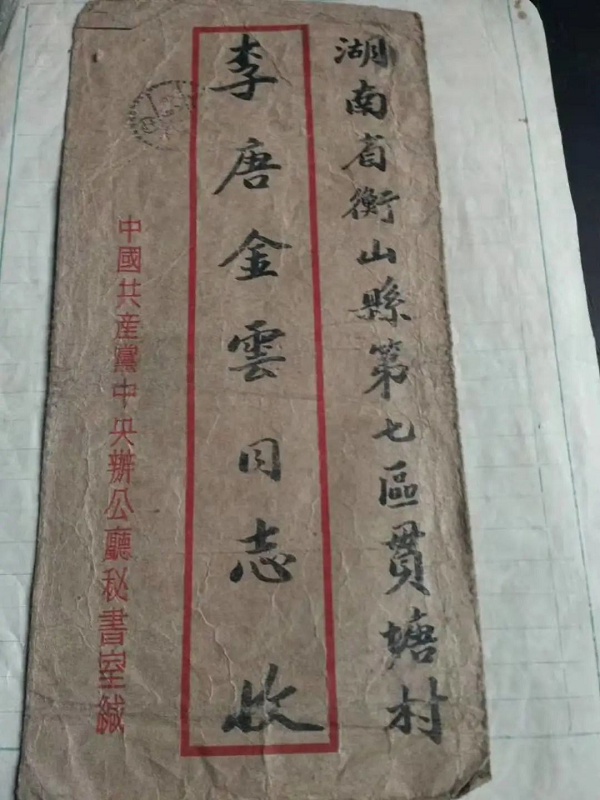 湖南省衡山縣第七區貫塘村
李唐金雲同志 收
中國共産黨中央辦公廳秘書室緘